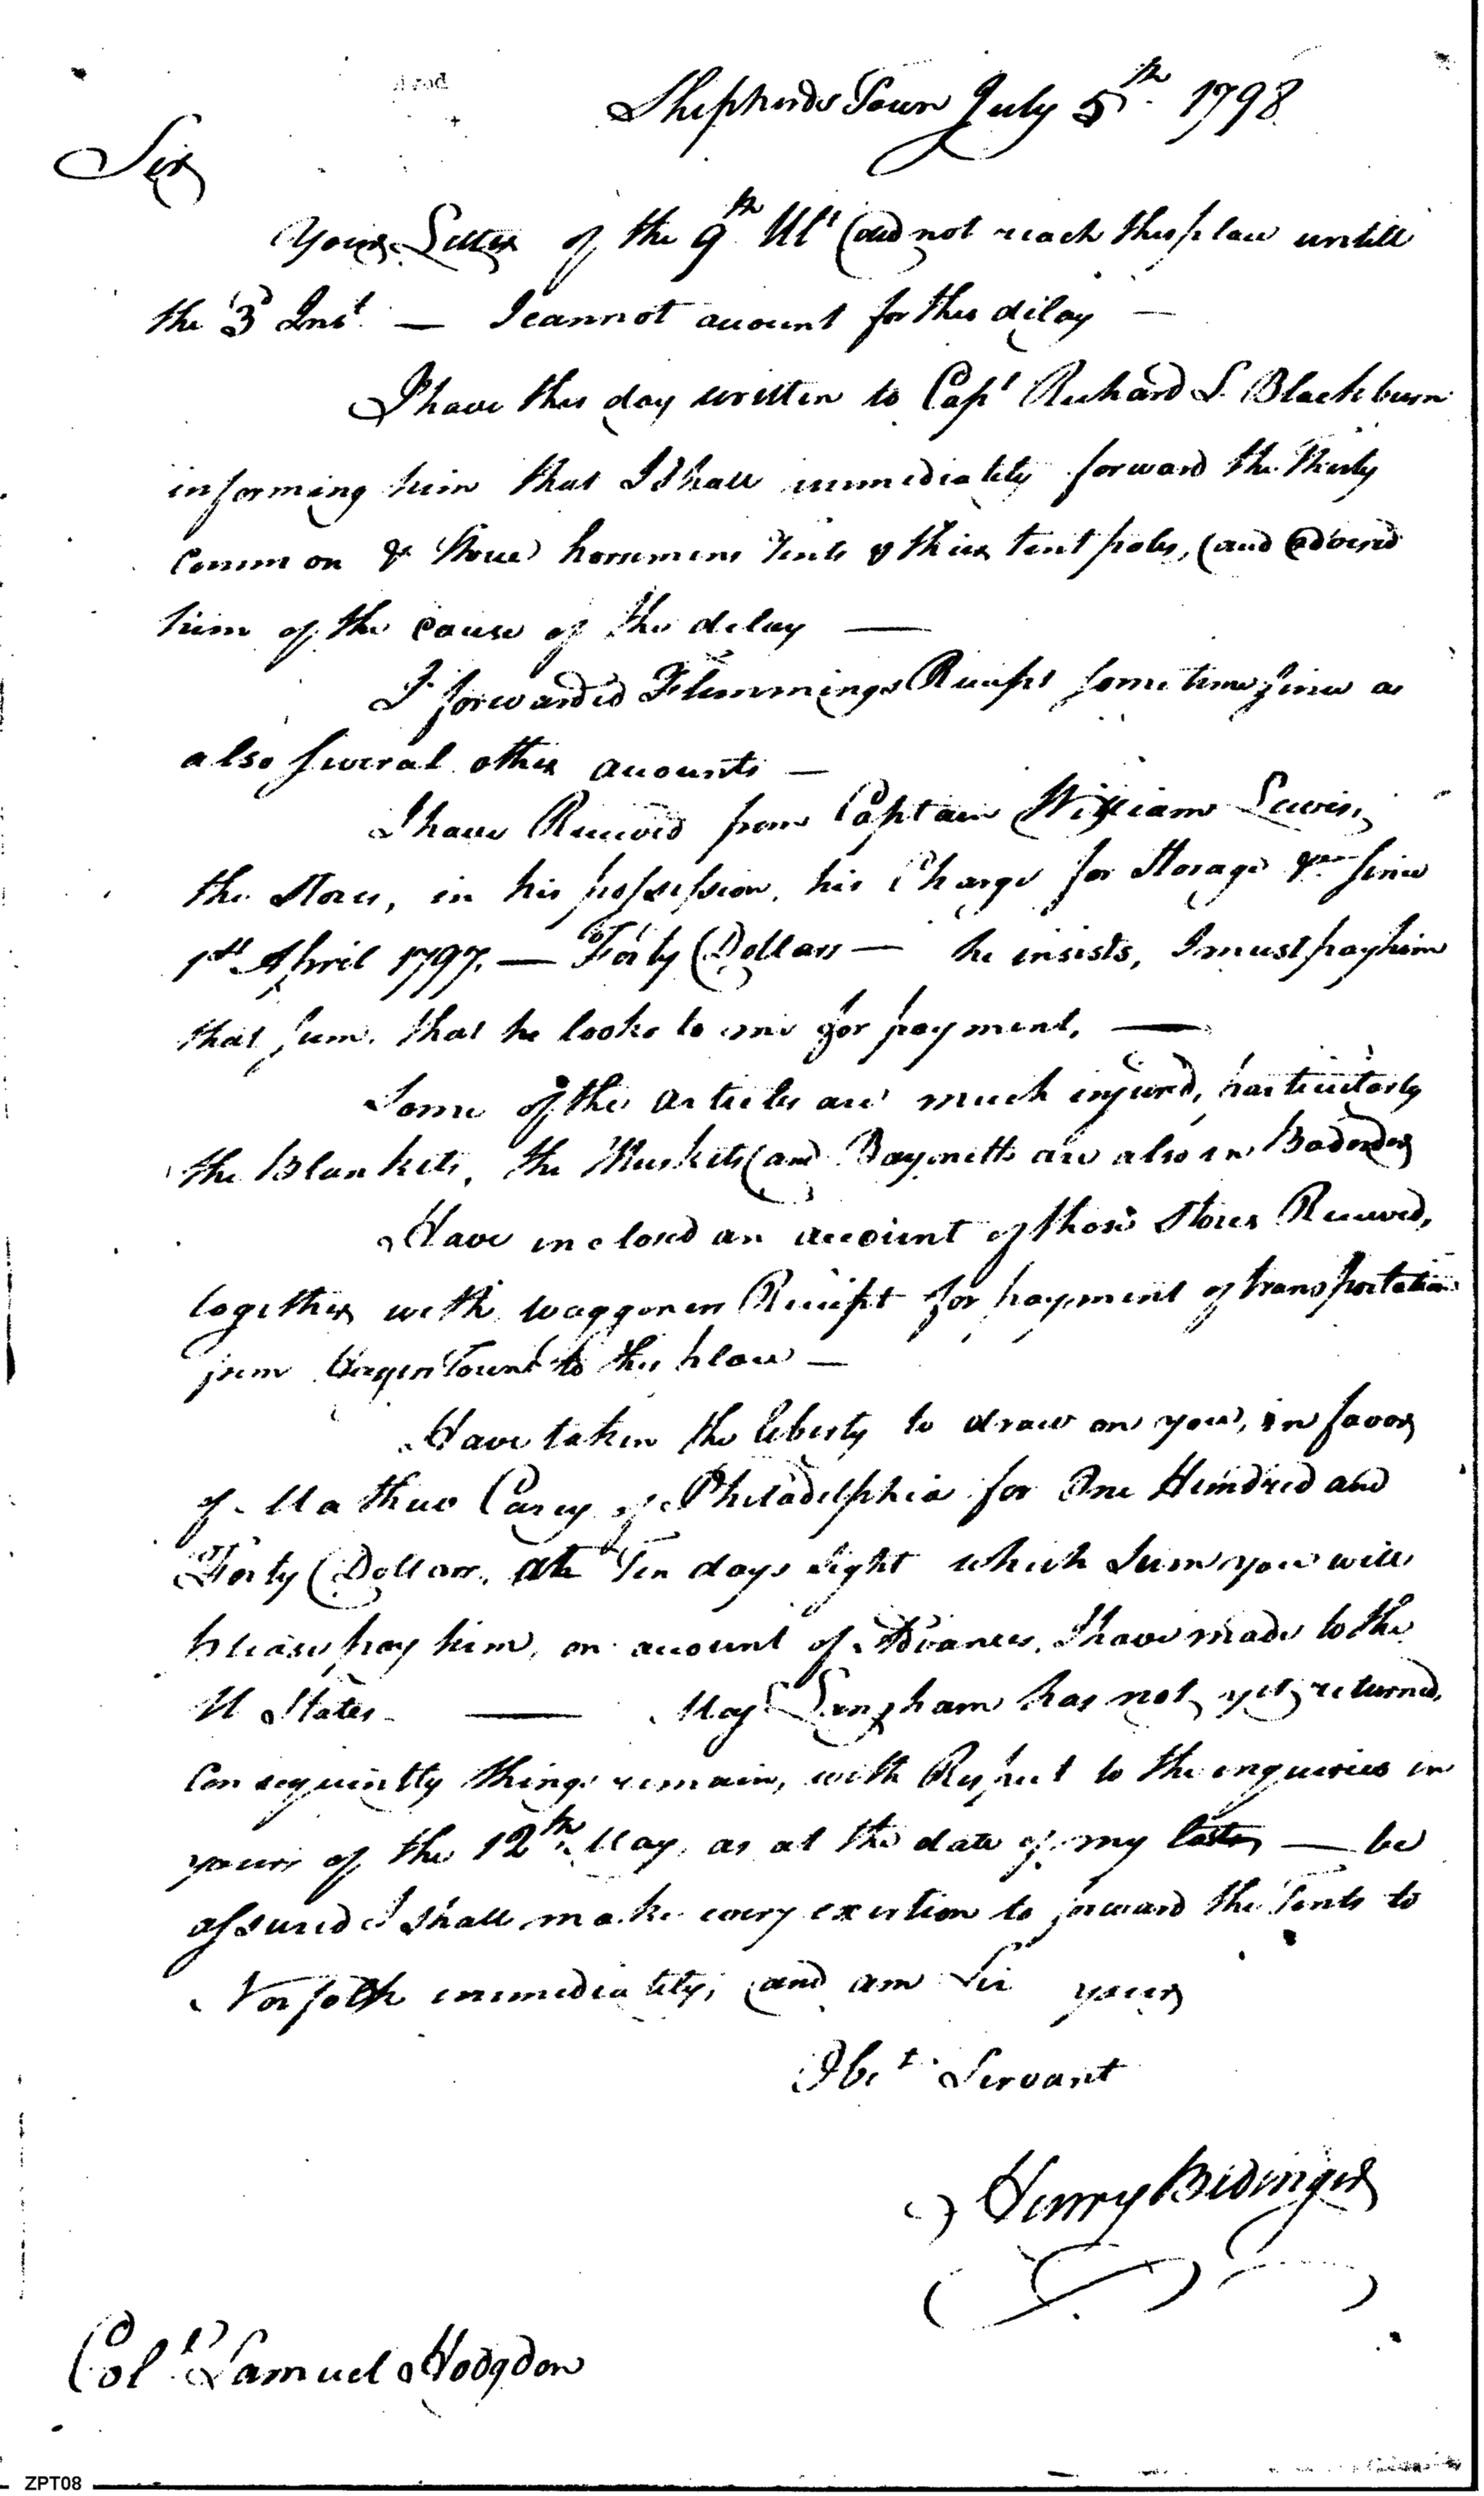 Shepherds Town July 5th 1798
Sir
Your Letter of the 9th Ult did not reach this place untill
the 3d Inst — I cannot account for this delay —
I have this day written to Capt Richard S. Blackburn
informing him that I shall immediately forward the thirty
common & three horsmens Tents & their tent poles, and advised
him of the cause of the delay —
I forwarded Flemmings Receipt some time since as
also several other accounts —
I have Received from Captain William Lewis,
the Stores, in his possession, his Charge for Storage &c since
1st April 1797. — Forty Dollars — he insists, I must pay him
that sum. that he looks to me for payment, —
Some of the articles are much injured, particularly
the Blankets, the Muskets and Bayonetts are also in Bad order
Have inclosed an account of those Stores Received,
together with waggoners Receipt for payment of transportation
from Hagers Town to this place —
Have taken the liberty to draw on you, in favor
of Mathew Carey of Philadelphia for One Hundred and
Forty Dollars, at Ten days sight which Sum you will
please pay him, on account of Advances, I have made to the
U States — Maj Lingham has not yet returned,
Consequintly things remain, with Respect to the enquiries in
yours of the 12th May, as at the date of my last — be
assured I shall make every exertion to forward the Tents to
Norfolk immediately, and am Sir your
Obt Servant
Henry Bedinger
Colo Samuel Hodgdon
ZPT08